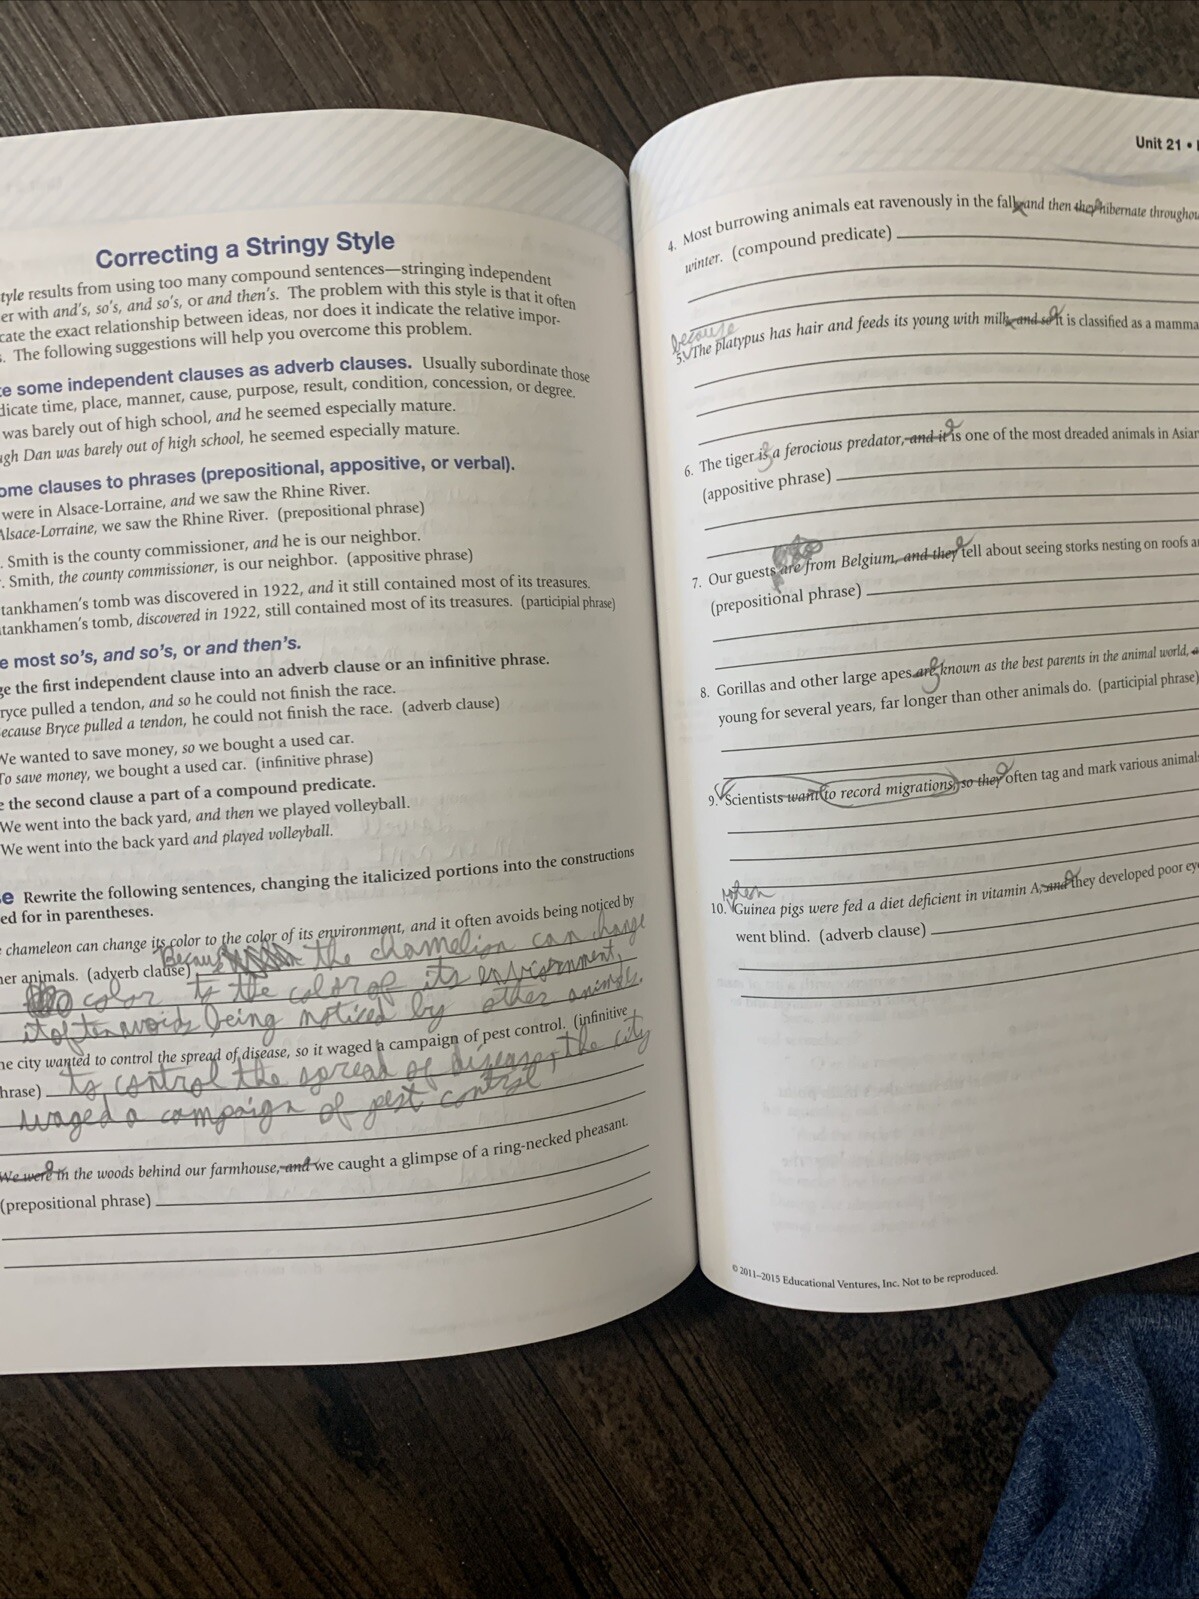 Correcting a Stringy Style
tyle results from using too many compound sentences—stringing independent
er with and's, so's, and so's, or and then's. The problem with this style is that it often
cate the exact relationship between ideas, nor does it indicate the relative impor-
s. The following suggestions will help you overcome this problem.
te some independent clauses as adverb clauses. Usually subordinate those
dicate time, place, manner, cause, purpose, result, condition, concession, or degree.
was barely out of high school, and he seemed especially mature.
ugh Dan was barely out of high school, he seemed especially mature.
ome clauses to phrases (prepositional, appositive, or verbal).
were in Alsace-Lorraine, and we saw the Rhine River.
Alsace-Lorraine, we saw the Rhine River. (prepositional phrase)
. Smith is the county commissioner, and he is our neighbor.
. Smith, the county commissioner, is our neighbor. (appositive phrase)
tankhamen's tomb was discovered in 1922, and it still contained most of its treasures.
tankhamen's tomb, discovered in 1922, still contained most of its treasures. (participial phrase)
e most so's, and so's, or and then's.
ge the first independent clause into an adverb clause or an infinitive phrase.
ryce pulled a tendon, and so he could not finish the race.
ecause Bryce pulled a tendon, he could not finish the race. (adverb clause)
We wanted to save money, so we bought a used car.
To save money, we bought a used car. (infinitive phrase)
e the second clause a part of a compound predicate.
We went into the back yard, and then we played volleyball.
We went into the back yard and played volleyball.
se Rewrite the following sentences, changing the italicized portions into the constructions
ed for in parentheses.
e chameleon can change its color to the color of its environment, and it often avoids being noticed by
her animals. (adverb clause) Because the chamelion can change
color to the color of its envicornment,
it often avoids being noticed by other animals.
he city wanted to control the spread of disease, so it waged a campaign of pest control. (infinitive
hrase) to control the spread of disease, the city
waged a campaign of pest control.
We were in the woods behind our farmhouse, and we caught a glimpse of a ring-necked pheasant.
(prepositional phrase)
Unit 21 •
4. Most burrowing animals eat ravenously in the fall, and then they hibernate throughou
winter. (compound predicate)
because
5. The platypus has hair and feeds its young with milk, and so it is classified as a mamma
6. The tiger is a ferocious predator, and it is one of the most dreaded animals in Asian
(appositive phrase)
7. Our guests are from Belgium, and they tell about seeing storks nesting on roofs a
(prepositional phrase)
8. Gorillas and other large apes are known as the best parents in the animal world,
young for several years, far longer than other animals do. (participial phrase)
9. Scientists want to record migrations, so they often tag and mark various animal
when
10. Guinea pigs were fed a diet deficient in vitamin A, and they developed poor ey
went blind. (adverb clause)
© 2011–2015 Educational Ventures, Inc. Not to be reproduced.